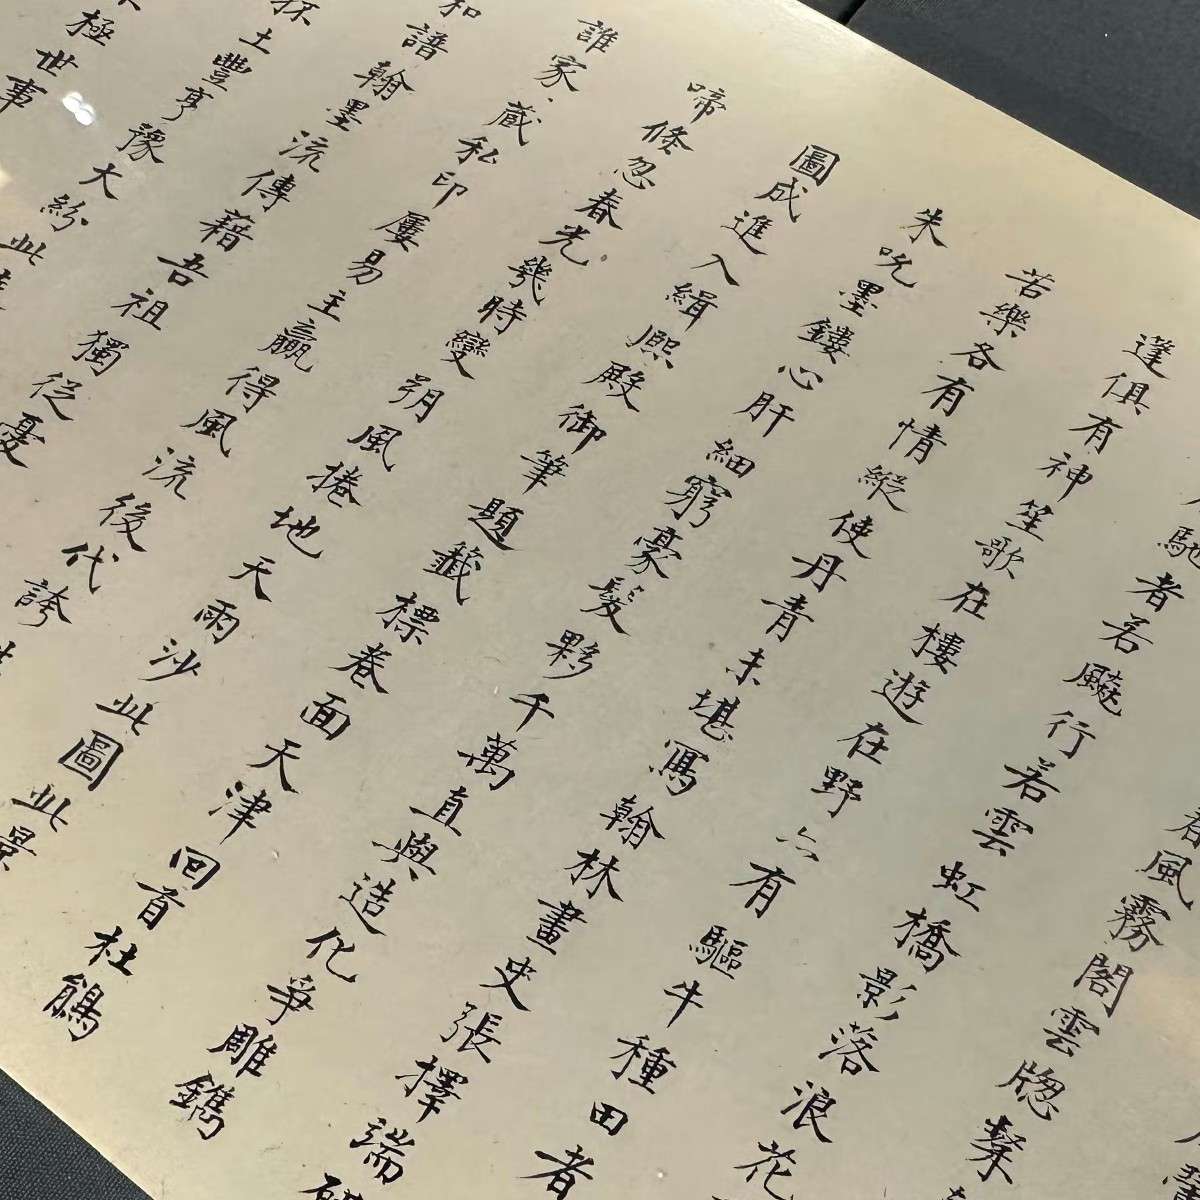 春風霧閣雲牕粲
馳者若飈行若雲虹橋影落浪花
蓬俱有神笙歌在樓遊在野亦有驅牛種田者
苦樂各有情縱使丹青未堪寫翰林畫史張擇端研
朱吮墨鏤心肝細窮毫髮夥千萬直與造化爭雕鐫
圖成進入緝熙殿御筆題籤標卷面天津回首杜鵑
啼倏忽春光幾時變朔風捲地天雨沙此圖此景
誰家藏私印屢易主贏得風流後代誇
和譜翰墨流傳藉吾祖獨從憂
抔土豐亨豫大紛此
極世事